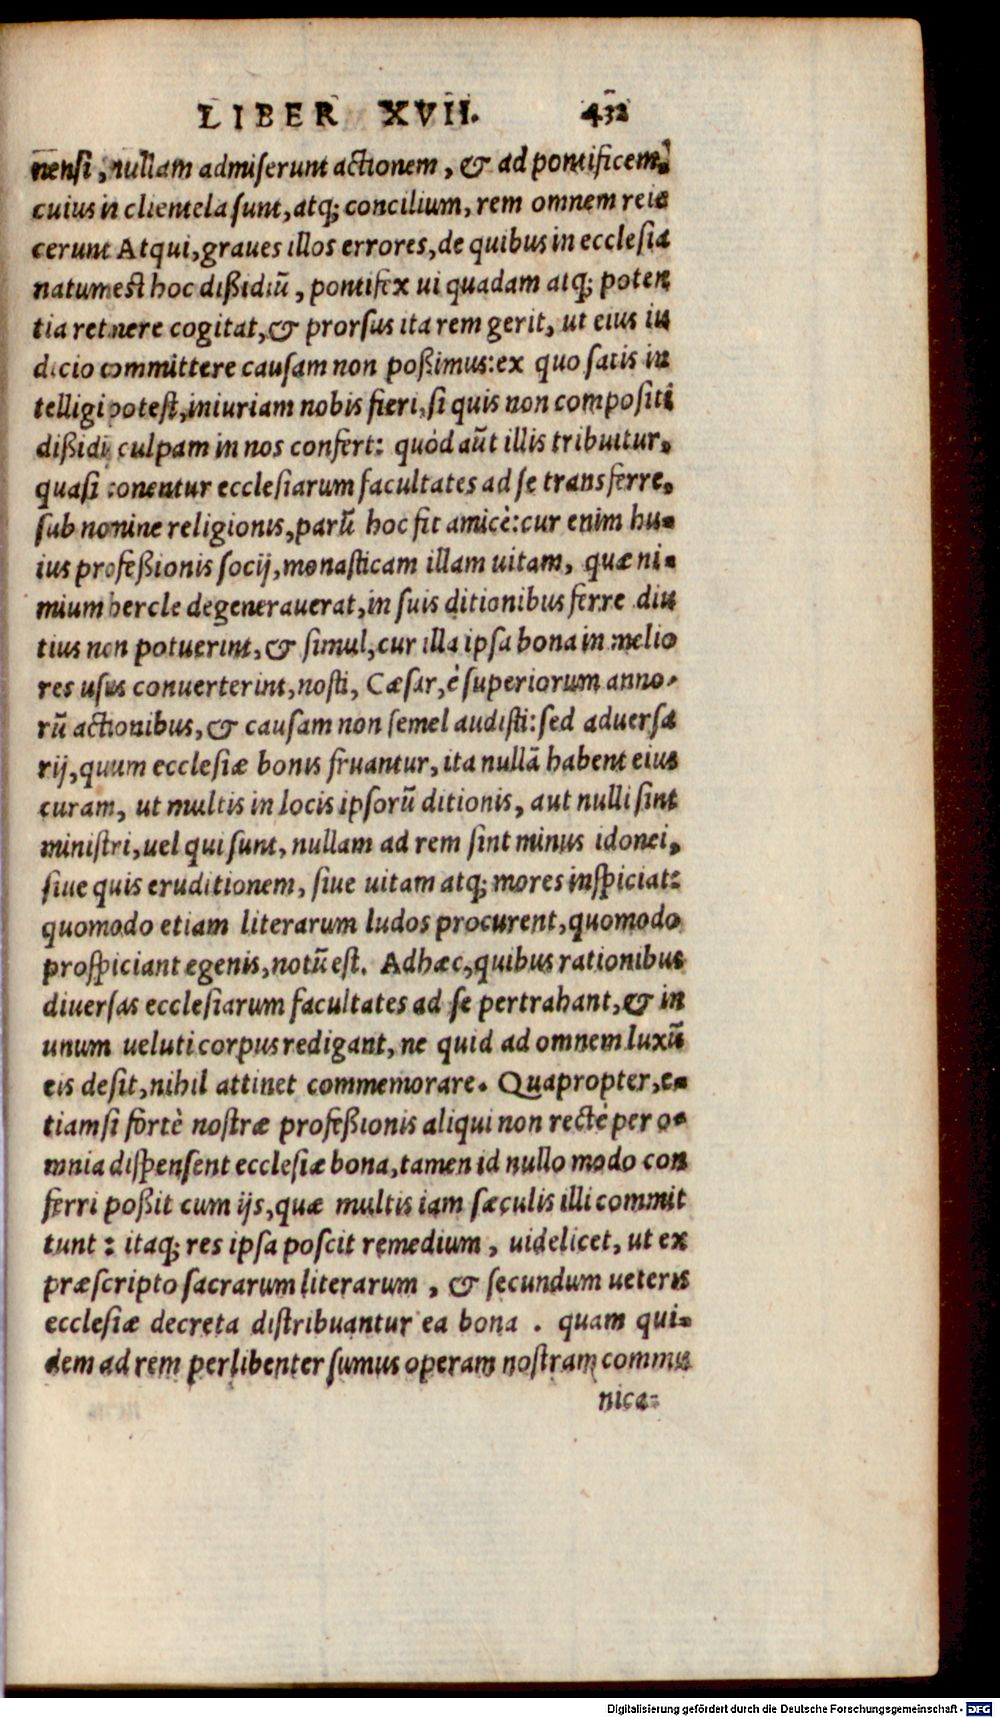 LIBER XVII. 432
nensi, nullam admiserunt actionem, & ad pontificem,
cuius in clientela sunt, atq; concilium, rem omnem reie
cerunt Atqui, graues illos errores, de quibus in ecclesia
natum est hoc dißidiũ, pontifex ui quadam atq; poten
tia retinere cogitat, & prorsus ita rem gerit, ut eius iu
dicio committere causam non poßimus: ex quo satis in
telligi potest, iniuriam nobis fieri, si quis non compositi
dißidij culpam in nos confert: quòd aũt illis tribuitur,
quasi conentur ecclesiarum facultates ad se transferre,
sub nomine religionis, parũ hoc fit amicè: cur enim hu-
ius profeßionis socij, monasticam illam uitam, quæ ni-
mium hercle degenerauerat, in suis ditionibus ferre diu
tius non potuerint, & simul, cur illa ipsa bona in melio
res usus conuerterint, nosti, Cæsar, è superiorum anno-
rũ actionibus, & causam non semel audisti: sed aduersa
rij, quum ecclesiæ bonis fruantur, ita nullã habent eius
curam, ut multis in locis ipsorũ ditionis, aut nulli sint
ministri, uel qui sunt, nullam ad rem sint minus idonei,
siue quis eruditionem, siue uitam atq; mores inspiciat:
quomodo etiam literarum ludos procurent, quomodo
prospiciant egenis, notũ est. Adhæc, quibus rationibus
diuersas ecclesiarum facultates ad se pertrahant, & in
unum ueluti corpus redigant, ne quid ad omnem luxũ
eis desit, nihil attinet commemorare. Quapropter, e-
tiamsi fortè nostræ profeßionis aliqui non rectè per o-
mnia dispensent ecclesiæ bona, tamen id nullo modo con
ferri poßit cum ijs, quæ multis iam sæculis illi commit
tunt: itaq; res ipsa poscit remedium, uidelicet, ut ex
præscripto sacrarum literarum, & secundum ueteris
ecclesiæ decreta distribuantur ea bona. quam qui-
dem ad rem perlibenter sumus operam nostram commu
nica-
Digitalisierung gefördert durch die Deutsche Forschungsgemeinschaft - DFG